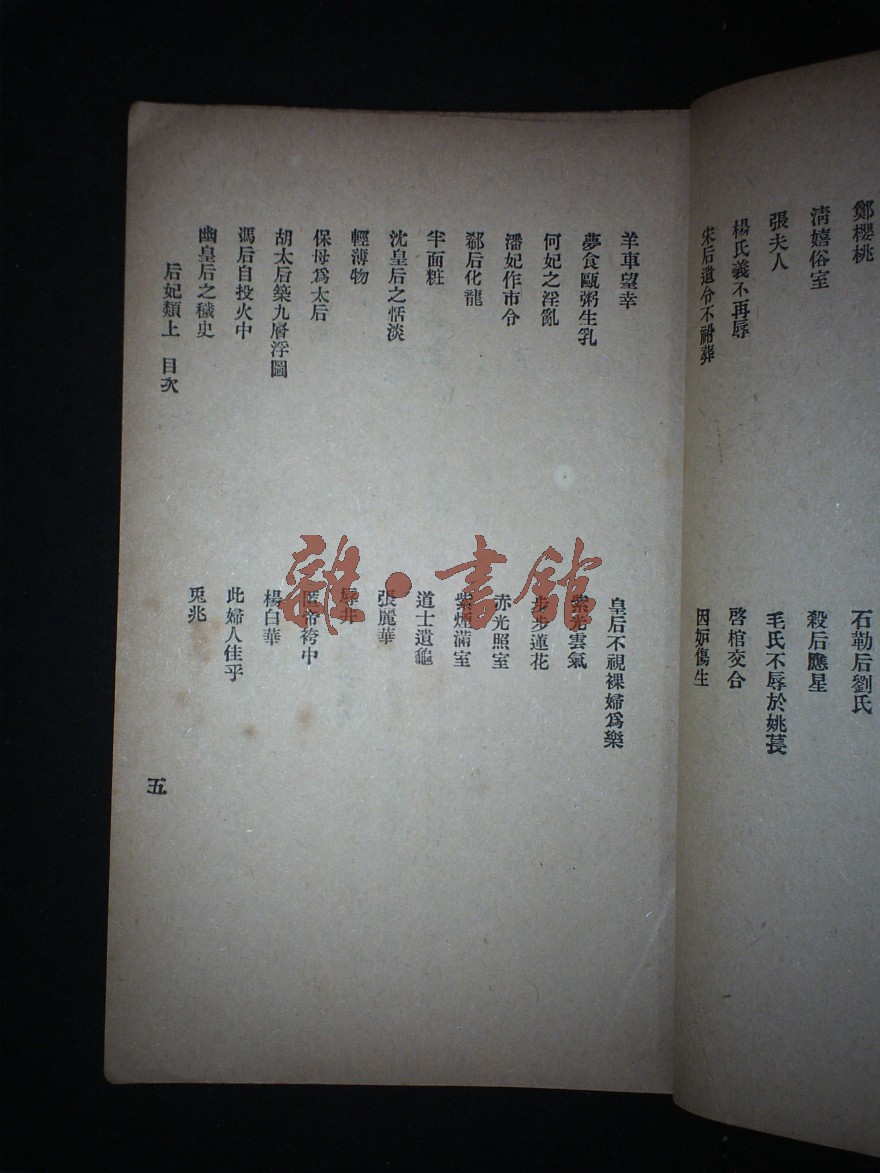 鄭櫻桃
石勒后劉氏
清嬉俗室
殺后應星
張夫人
毛氏不辱於姚萇
楊氏義不再辱
啓棺交合
宋后遺令不祔葬
因妒傷生
羊車望幸
皇后不視裸婦爲樂
夢食甌粥生乳
紫光雲氣
何妃之淫亂
步步蓮花
潘妃作市令
赤光照室
郗后化龍
紫煙滿室
半面粧
道士遺龜
沈皇后之恬淡
張麗華
輕薄物
井
保母爲太后
匿帝袴中
胡太后築九層浮圖
楊白華
馮后自投火中
此婦人佳乎
幽皇后之穢史
兎兆
后妃類上 目次
五
雜·書館